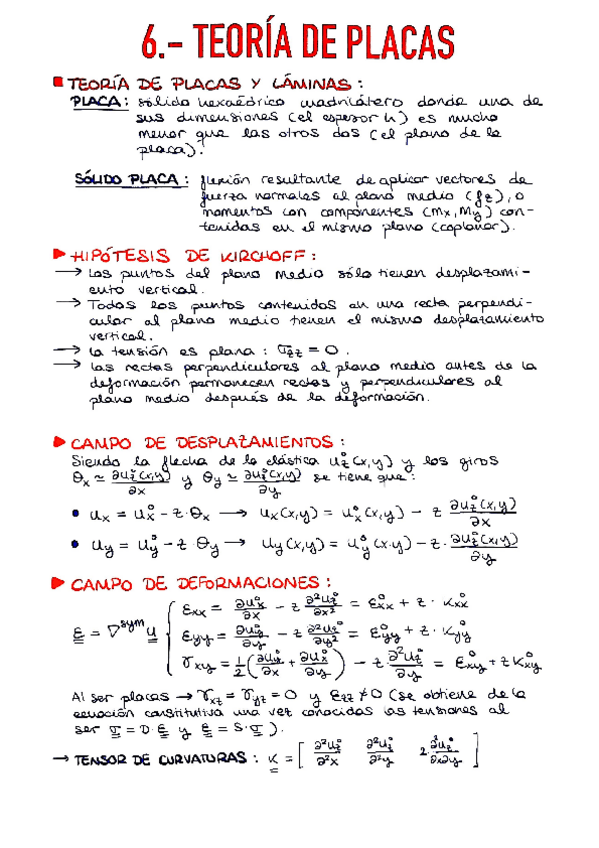 6.- TEORÍA DE PLACAS
TEORÍA DE PLACAS Y LÁMINAS:
PLACA: sólido hexaédrico cuadrilátero donde una de
sus dimensiones (el espesor h) es mucho
menor que las otros dos (el plano de la
placa).
SÓLIDO PLACA: flexión resultante de aplicar vectores de
fuerza normales al plano medio (fz), o
momentos con componentes (mx, My) con-
tenidas en el mismo plano (coplanar).
HIPÓTESIS DE KIRCHOFF:
→ Los puntos del plano medio sólo tienen desplazami-
ento vertical.
→ Todos los puntos contenidos en una recta perpendi-
cular al plano medio tienen el mismo desplazamiento
vertical.
→ La tensión es plana: σzz = 0.
→ Las rectas perpendiculares al plano medio antes de la
deformación permanecen rectas y perpendiculares al
plano medio después de la deformación.
CAMPO DE DESPLAZAMIENTOS:
Siendo la flecha de la elástica uz°(x,y) y los giros
θx ≃ ∂uz°(x,y)/∂x y θy ≃ ∂uz°(x,y)/∂y se tiene que:
• ux = ux° - z·θx → ux(x,y) = ux°(x,y) - z ∂uz°(x,y)/∂x
• uy = uy° - z·θy → uy(x,y) = uy°(x,y) - z·∂uz°(x,y)/∂y
CAMPO DE DEFORMACIONES:
εxx = ∂ux°/∂x - z ∂²uz°/∂x² = εxx° + z·κxx°
ε = ∇sym u { εyy = ∂uy°/∂y - z ∂²uz°/∂y² = εyy° + z·κyy°
γxy = 1/2(∂uy°/∂x + ∂ux°/∂y) - z·∂²uz°/∂x∂y = εxy° + z κxy°
Al ser placas → γxz = γyz = 0 y εzz ≠ 0 (se obtiene de la
ecuación constitutiva una vez conocidas las tensiones al
ser σ = D·ε y ε = S·σ).
→ TENSOR DE CURVATURAS: κ = [ ∂²uz°/∂²x ∂²uz°/∂²y 2·∂²uz°/∂x∂y ]